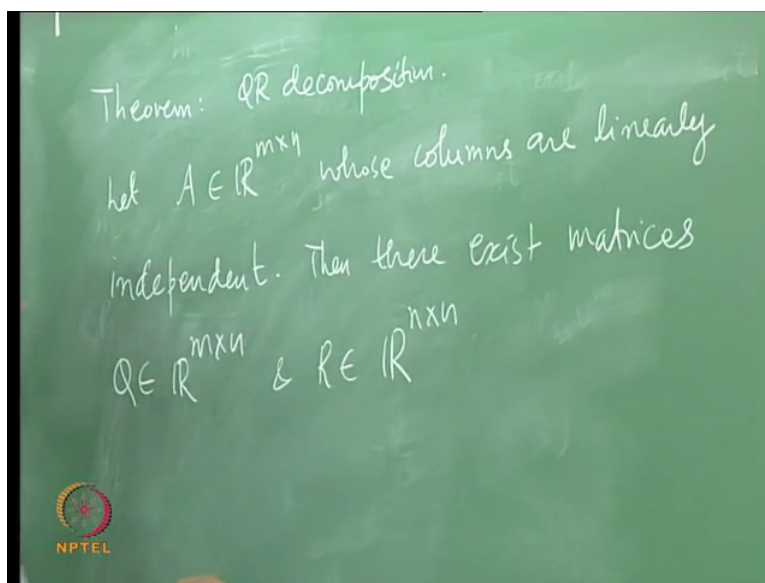 Theorem: QR decomposition.
Let A ∈ ℝ^{m×n} whose columns are linearly
independent. Then there exist matrices
Q ∈ ℝ^{m×n} & R ∈ ℝ^{n×n}
NPTEL